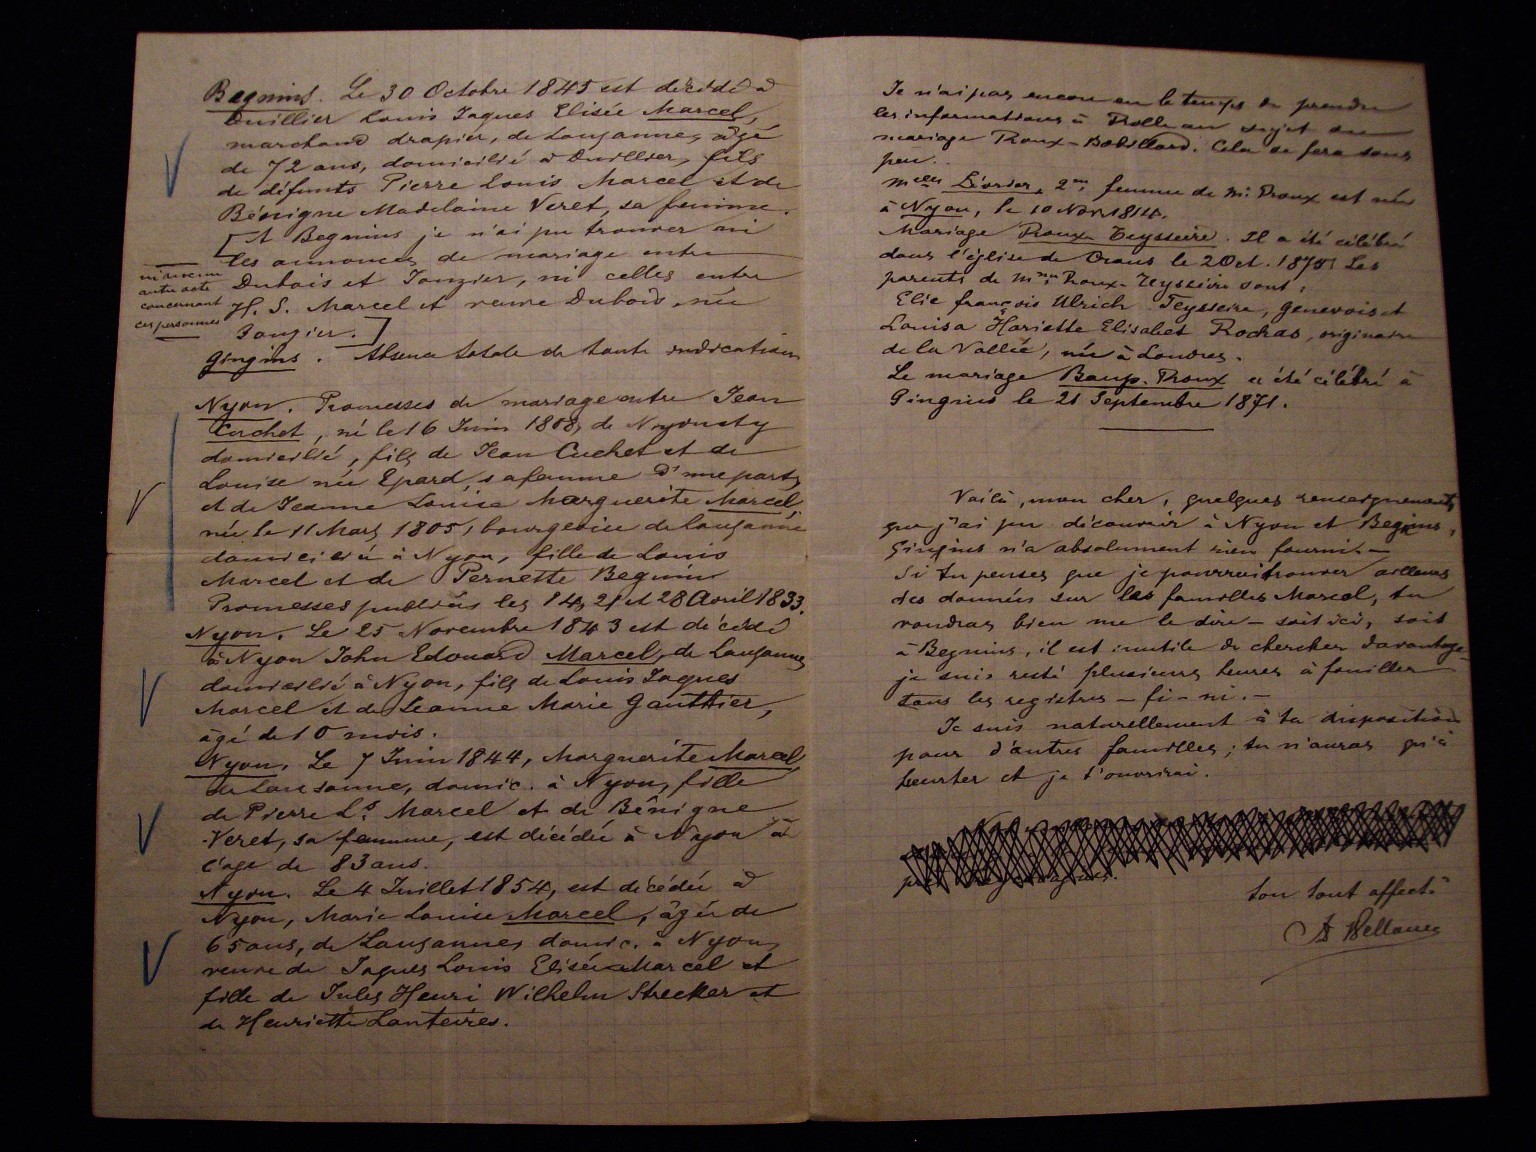 Begnins. Le 30 Octobre 1845 est décédé à
Duillier Louis Jaques Elisée Marcel,
marchand drapier, de Lausanne, âgé
de 72 ans, domicilié à Duillier, fils
de défunts Pierre Louis Marcel et de
Bénigne Madelaine Veret, sa femme.
[A Begnins je n'ai pu trouver ni
les annonces de mariage entre
Dubois et Tanzier, ni celles entre
H. S. Marcel et veuve Dubois, née
Tanzier.]
ni aucun
autre acte
concernant
ces personnes
Gingins. Absence totale de toute indication
Nyon. Promesses de mariage entre Jean
Cuchet, né le 16 Juin 1808, de Nyon et y
domicilié, fils de Jean Cuchet et de
Louise née Epard, sa femme d'une part,
et de Jeanne Louise Marguerite Marcel,
née le 11 Mars 1805, bourgeoise de Lausanne
domiciliée à Nyon, fille de Louis
Marcel et de Pernette Begnin
Promesses publiées les 14, 21 et 28 Avril 1833.
Nyon. Le 25 Novembre 1843 est décédé
à Nyon John Edouard Marcel, de Lausanne,
domicilié à Nyon, fils de Louis Jaques
Marcel et de Jeanne Marie Gautthier,
âgé de 10 mois.
Nyon. Le 7 Juin 1844, Marguerite Marcel,
de Lausanne, domic. à Nyon, fille
de Pierre Ls. Marcel et de Bénigne
Veret, sa femme, est décédée à Nyon à
l'âge de 83 ans.
Nyon. Le 4 Juillet 1854, est décédée à
Nyon, Marie Louise Marcel, âgée de
65 ans, de Lausanne, domic. à Nyon,
veuve de Jaques Louis Elisée Marcel et
fille de Jules Henri Wilhelm Strecker et
de Henriette Lanteires.
Je n'ai pas encore eu le temps de prendre
les informations à Rolle au sujet du
mariage Roux-Bobillard. Cela se fera sous
peu.
Melle Lévrier, 2me femme de M. Roux est née
à Nyon, le 10 Nov. 1814.
Mariage Roux-Teysseire. Il a été célébré
dans l'église de Crans le 2 Oct. 1870. Les
parents de Mme Roux-Teysseire sont:
Elie françois Ulrich Teysseire, genevois et
Louisa Hariette Elisabet Rochas, originaire
de la Vallée, née à Londres.
Le mariage Baup-Roux a été célébré à
Gingins le 21 Septembre 1871.
Voilà, mon cher, quelques renseignements
que j'ai pu découvrir à Nyon et Begnins,
Gingins n'a absolument rien fourni. —
Si tu penses que je pourrai trouver ailleurs
des données sur les familles Marcel, tu
voudras bien me le dire — soit ici, soit
à Begnins, il est inutile de chercher davantage
je suis resté plusieurs heures à fouiller
tous les registres — fi - ni. —
Je suis naturellement à ta disposition
pour d'autres familles; tu n'auras qu'à
heurter et je t'ouvrirai.
ton tout affect.